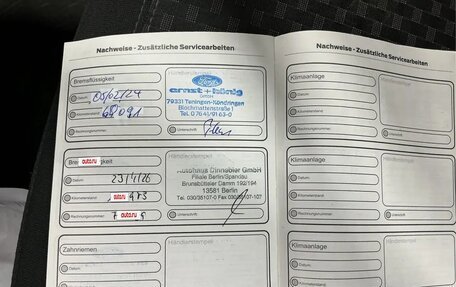 Nachweise - Zusätzliche Servicearbeiten
Bremsflüssigkeit
Händlerstempel
Datum
05/02/24
Kilometerstand
Rechnungsnummer
Ford
ernst + könig
GmbH
79331 Teningen-Köndringen
Blochmattenstraße 1
Tel. 0 76 41/91 63-0
Unterschrift
auto.ru
Datum
23/4/26
Kilometerstand
auto.ru
Rechnungsnummer
auto.ru
Autohaus Dinnebier GmbH
Filiale Berlin/Spandau
Brunsbütteler Damm 192/194
13581 Berlin
Tel. 030/35107-0 Fax 030/35107-107
Unterschrift
Zahnriemen
Händlerstempel
Datum
Kilometerstand
Nachweise - Zusätzliche Servicearbeiten
Klimaanlage
Händlerstempel
Datum
Kilometerstand
Rechnungsnummer
Unterschrift
Klimaanlage
Händlerstempel
Datum
Kilometerstand
Rechnungsnummer
Unterschrift
Klimaanlage
Händlerstempel
Datum
Kilometerstand